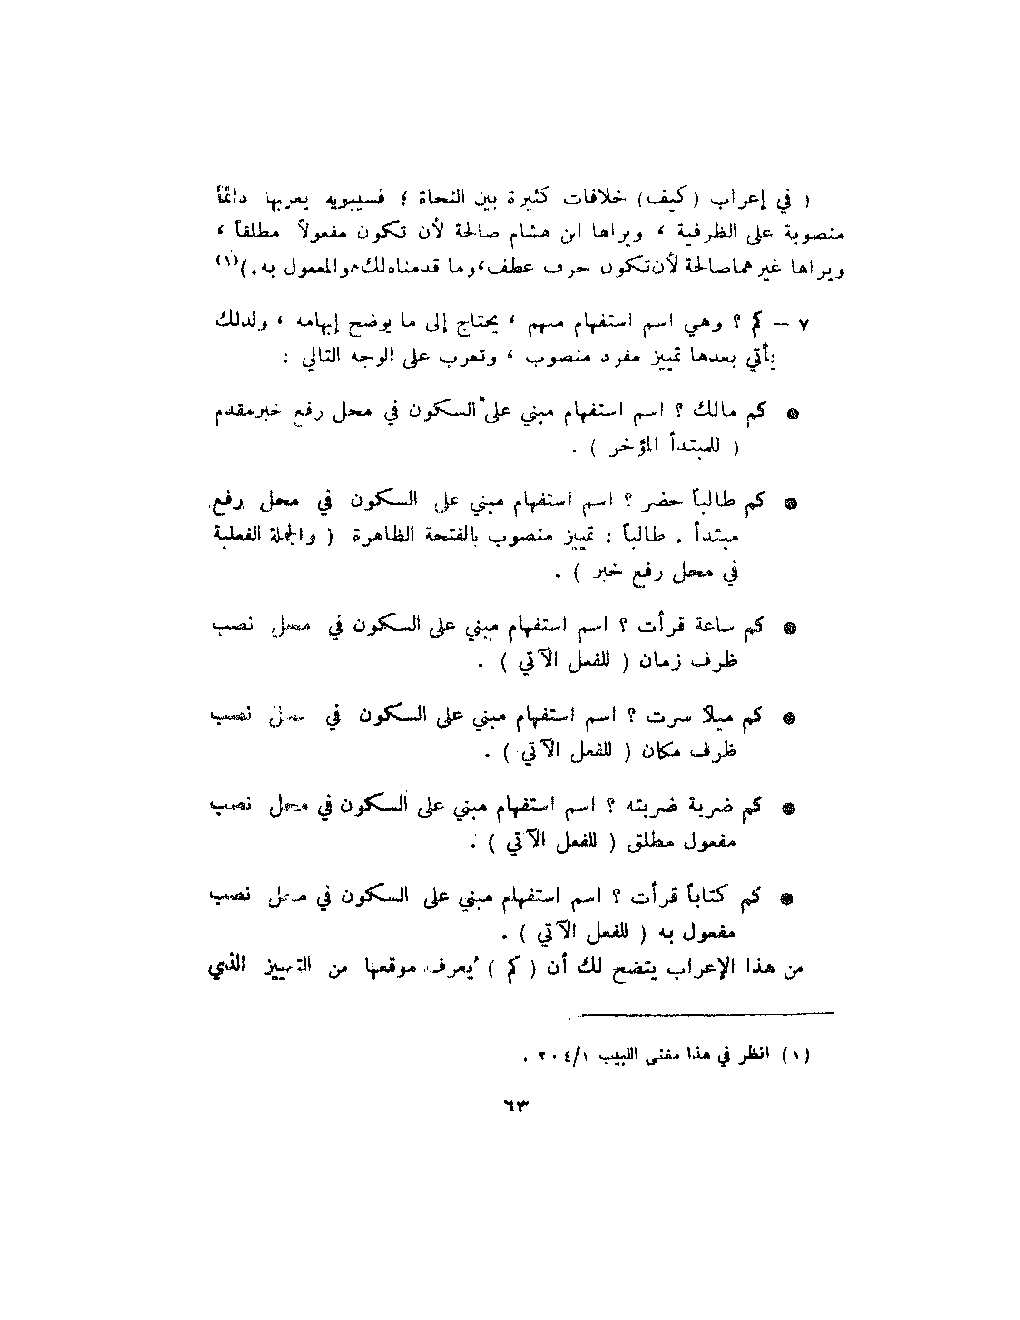 ( في إعراب (كيف) خلافات كثيرة بين النحاة ؛ فسيبويه يعربها دائماً
منصوبة على الظرفية ، ويراها ابن هشام صالحة لأن تكون مفعولاً مطلقاً ،
ويراها غيرهما صالحة لأن تكون حرف عطف، وما قدمناه لك هو المعمول به.)(١)
٧ – كم ؟ وهي اسم استفهام مبهم ، يحتاج إلى ما يوضح إبهامه ، ولذلك
يأتي بعدها تمييز مفرد منصوب ، وتعرب على الوجه التالي :
● كم مالك ؟ اسم استفهام مبني على السكون في محل رفع خبر مقدم
( للمبتدأ المؤخر ) .
● كم طالباً حضر ؟ اسم استفهام مبني على السكون في محل رفع
مبتدأ . طالباً : تمييز منصوب بالفتحة الظاهرة ( والجملة الفعلية
في محل رفع خبر ) .
● كم ساعة قرأت ؟ اسم استفهام مبني على السكون في محل نصب
ظرف زمان ( للفعل الآتي ) .
● كم ميلاً سرت ؟ اسم استفهام مبني على السكون في محل نصب
ظرف مكان ( للفعل الآتي ) .
● كم ضربة ضربته ؟ اسم استفهام مبني على السكون في محل نصب
مفعول مطلق ( للفعل الآتي ) .
● كم كتاباً قرأت ؟ اسم استفهام مبني على السكون في محل نصب
مفعول به ( للفعل الآتي ) .
من هذا الإعراب يتضح لك أن ( كم ) يُعرف موقعها من التمييز الذي
(١) انظر في هذا مغنى اللبيب ٢٠٤/١ .
٦٣